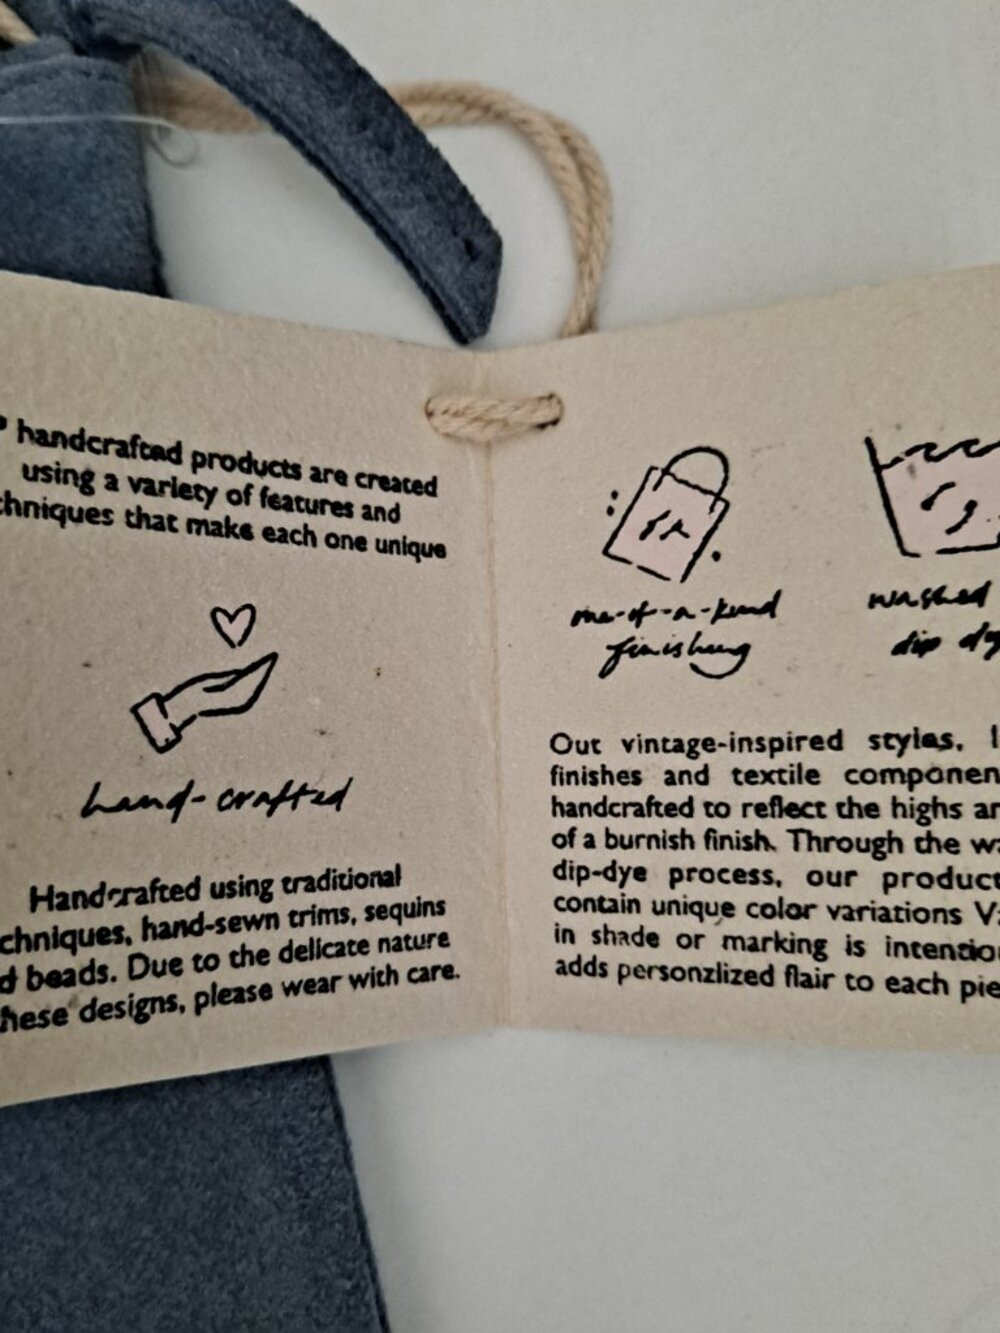 handcrafted products are created
using a variety of features and
chniques that make each one unique
hand-crafted
Handcrafted using traditional
chniques, hand-sewn trims, sequins
d beads. Due to the delicate nature
hese designs, please wear with care.
one-of-a-kind
finishing
washed
dip dy
Out vintage-inspired styles, l
finishes and textile componen
handcrafted to reflect the highs an
of a burnish finish. Through the wa
dip-dye process, our product
contain unique color variations Va
in shade or marking is intentio
adds personzlized flair to each pie